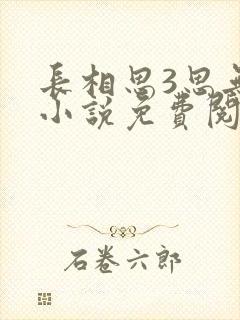 長相思3思無
小說免費閱
石卷六郎